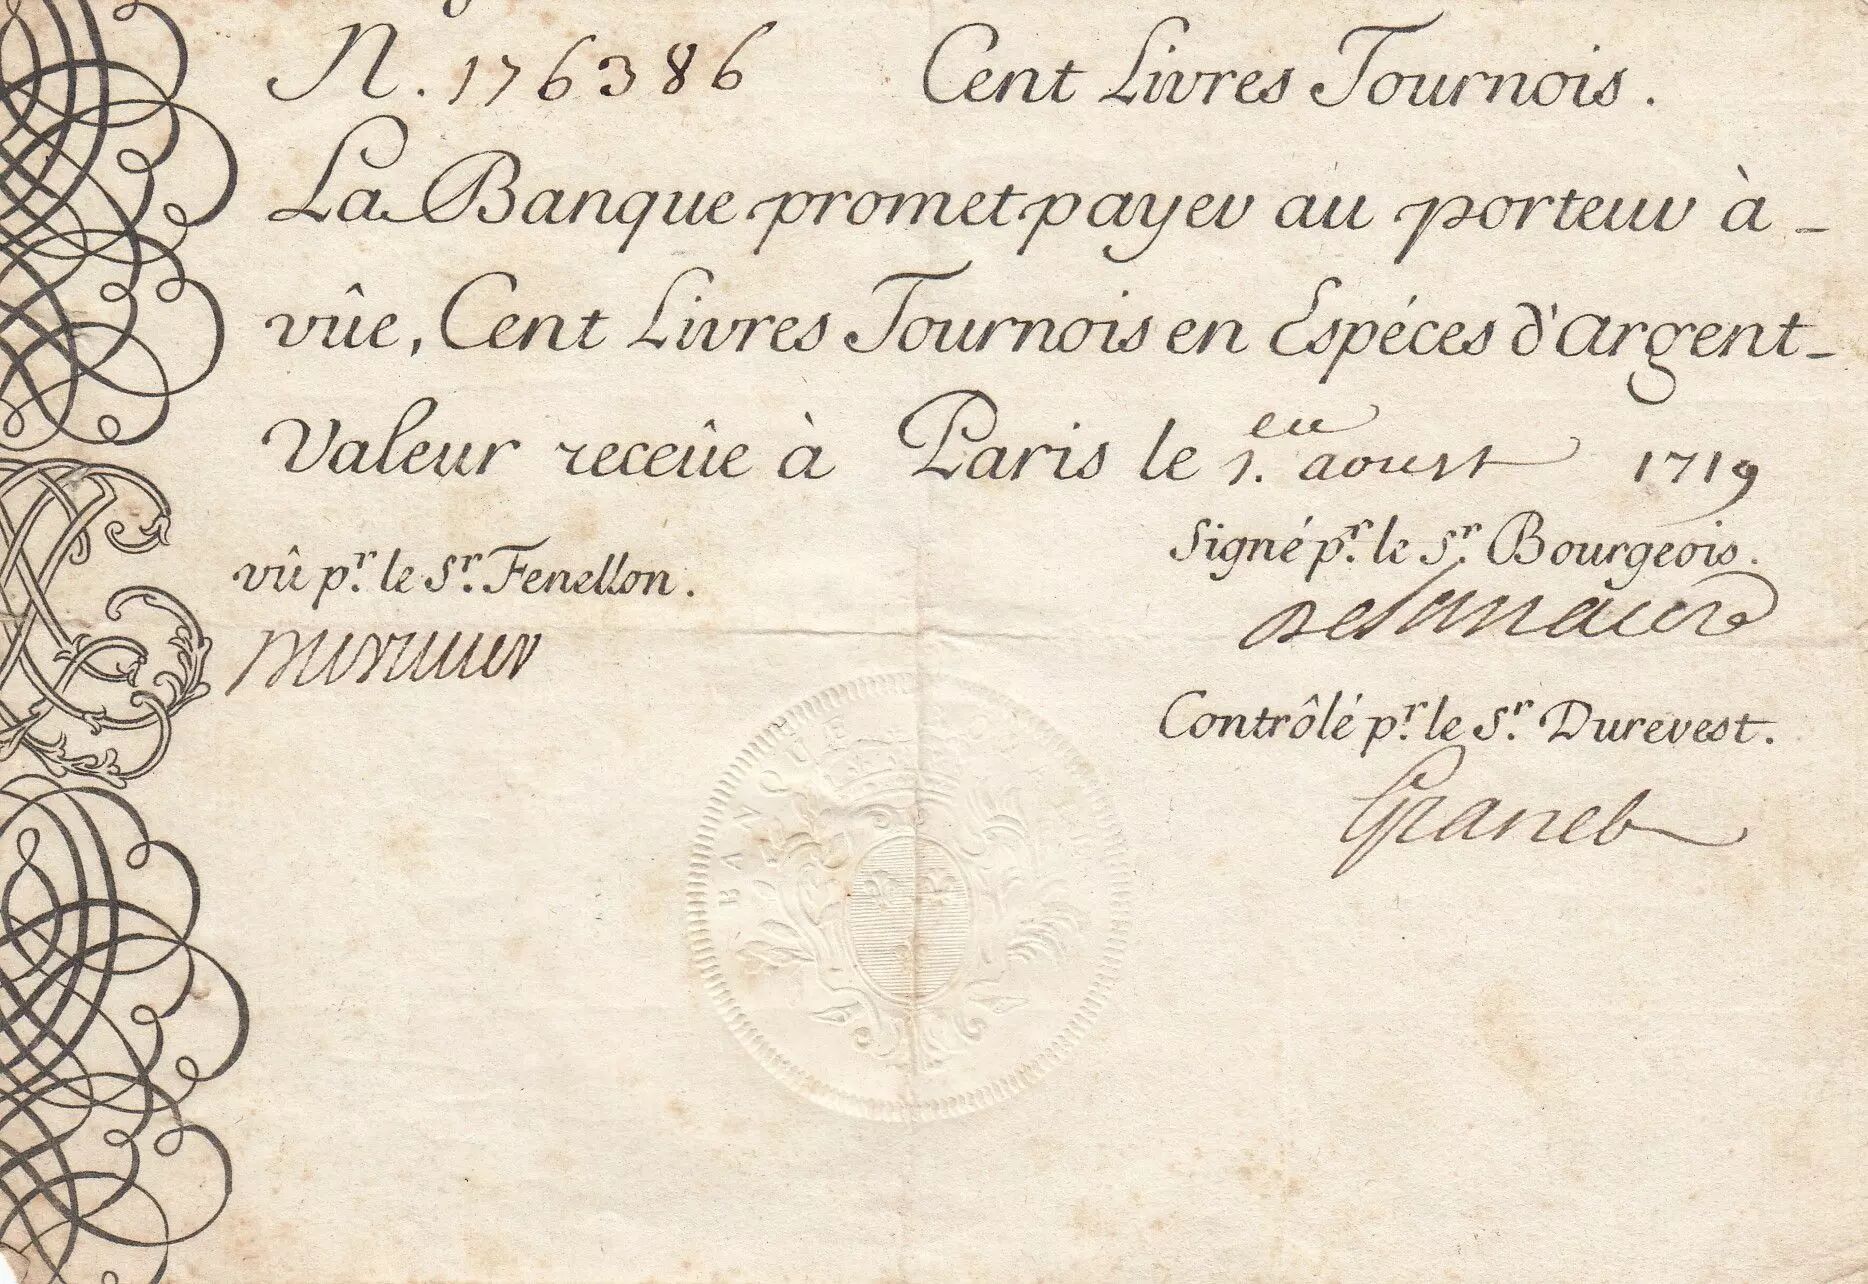 N. 176386 Cent Livres Tournois.
La Banque promet payer au porteur à -
vûe, Cent Livres Tournois en Espéces d'argent -
Valeur receüe à Paris le 1.er aoust 1719
vû pr. le Sr. Fenellon.
Signé pr. le Sr. Bourgeois.
Contrôlé pr. le Sr. Durevest.
Granet
BANQUE